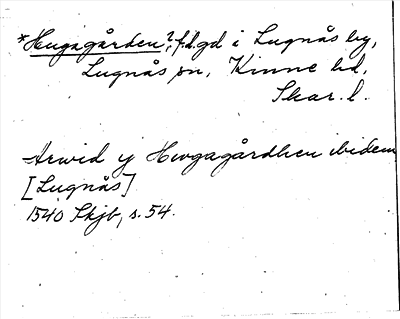 *Hugagården?, f.d. gd i Lugnås by,
Lugnås sn, Kinne hd,
Skar. l.
Arwid y Hwgagårdhen ibidem
[Lugnås]
1540 Skjb, s. 54.